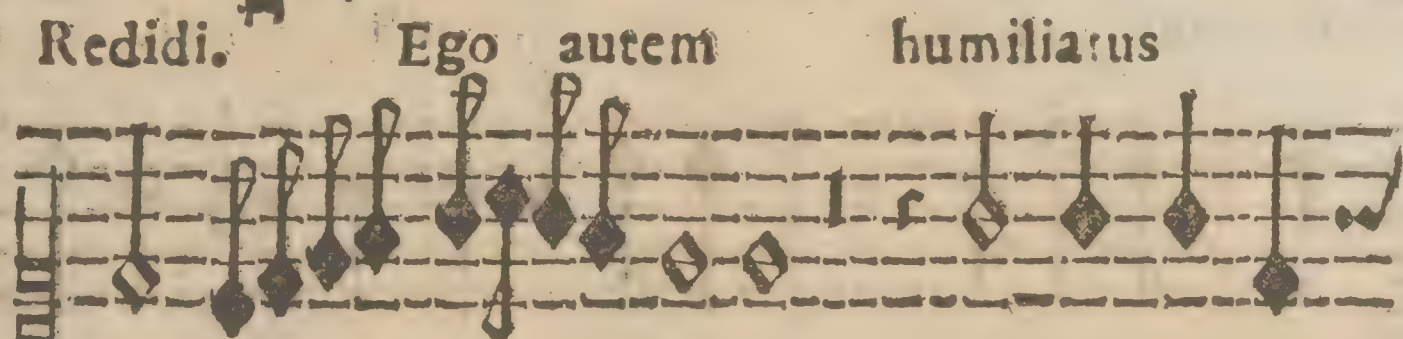 Redidi. Ego autem humiliatus